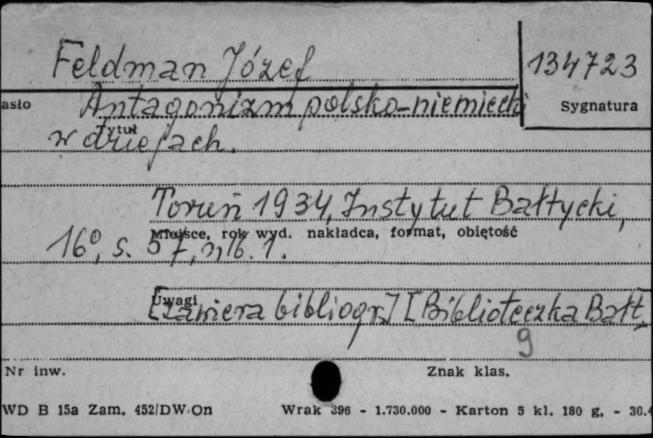 Feldman Józef
134723
asło
Antagonizm polsko-niemiecki
Sygnatura
Tytuł
w dziejach.
Toruń 1934, Instytut Bałtycki,
Miejsce, rok wyd. nakładca, format, objętość
16º, s. 57, nlb. 1.
Uwagi
[Zawiera bibliogr.] [Biblioteczka Bałt.
9
Nr inw.
Znak klas.
WD B 15a Zam. 452/DW On
Wrak 396 - 1.730.000 - Karton 5 kl. 180 g. - 30.4